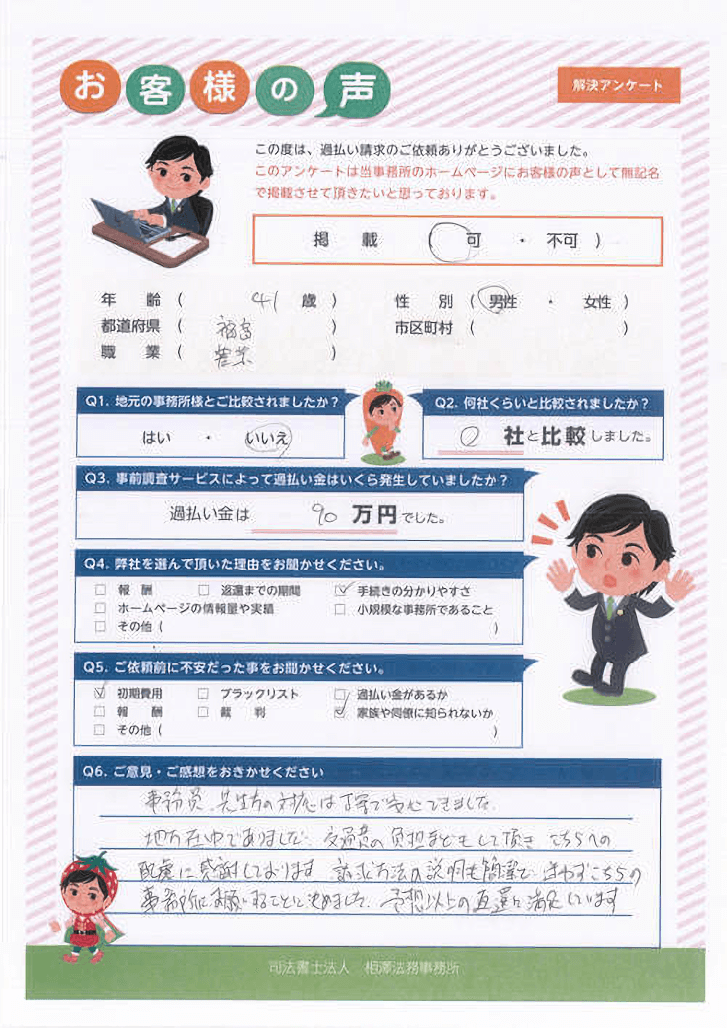 お客様の声
解決アンケート
この度は、過払い請求のご依頼ありがとうございました。
このアンケートは当事務所のホームページにお客様の声として無記名
で掲載させて頂きたいと思っております。
掲　載　（　可　・　不可　）
年　齢（　41　歳　）　性　別（　男性　・　女性　）
都道府県（　福島　）　市区町村（　）
職　業（　営業　）
Q1. 地元の事務所様とご比較されましたか？
はい　・　いいえ
Q2. 何社くらいと比較されましたか？
0　社と比較しました。
Q3. 事前調査サービスによって過払い金はいくら発生していましたか？
過払い金は　90　万円でした。
Q4. 弊社を選んで頂いた理由をお聞かせください。
□ 報　酬　□ 返還までの期間　☑ 手続きの分かりやすさ
□ ホームページの情報量や実績　□ 小規模な事務所であること
□ その他（　）
Q5. ご依頼前に不安だった事をお聞かせください。
☑ 初期費用　□ ブラックリスト　□ 過払い金があるか
□ 報　酬　□ 裁　判　☑ 家族や同僚に知られないか
□ その他（　）
Q6. ご意見・ご感想をおきかせください
事務員、先生方の対応は丁寧で安心できました。
地方在中でありましたが、交通費の負担までもして頂き こちらへの
配慮に感謝しております。請求方法の説明も簡潔で 迷わずこちらの
事務所にお願いすることに決めました。予想以上の返還に満足しています
司法書士法人　相澤法務事務所